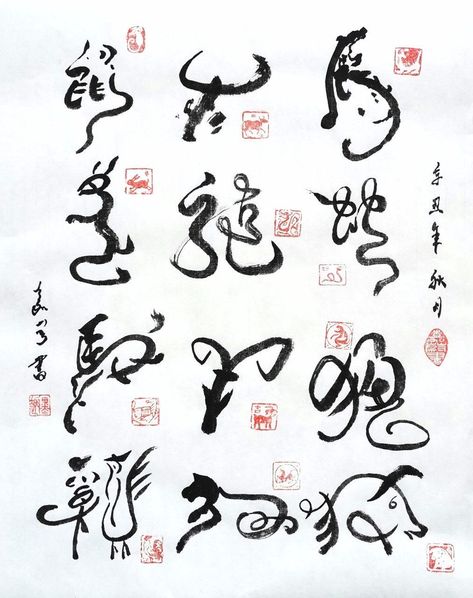 鼠 牛 虎
兔 龍 蛇
馬 羊 猴
鷄 狗 猪
辛丑年 秋月
書